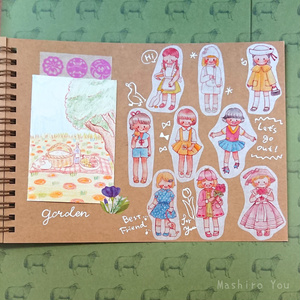 Hi
Let's
go
out!
garden
Best
Friend!
for
you
Mashiro You